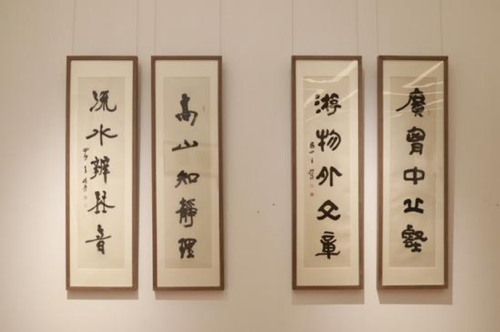 廣胷中丘壑
游物外文章
高山知靜理
流水辨琴音